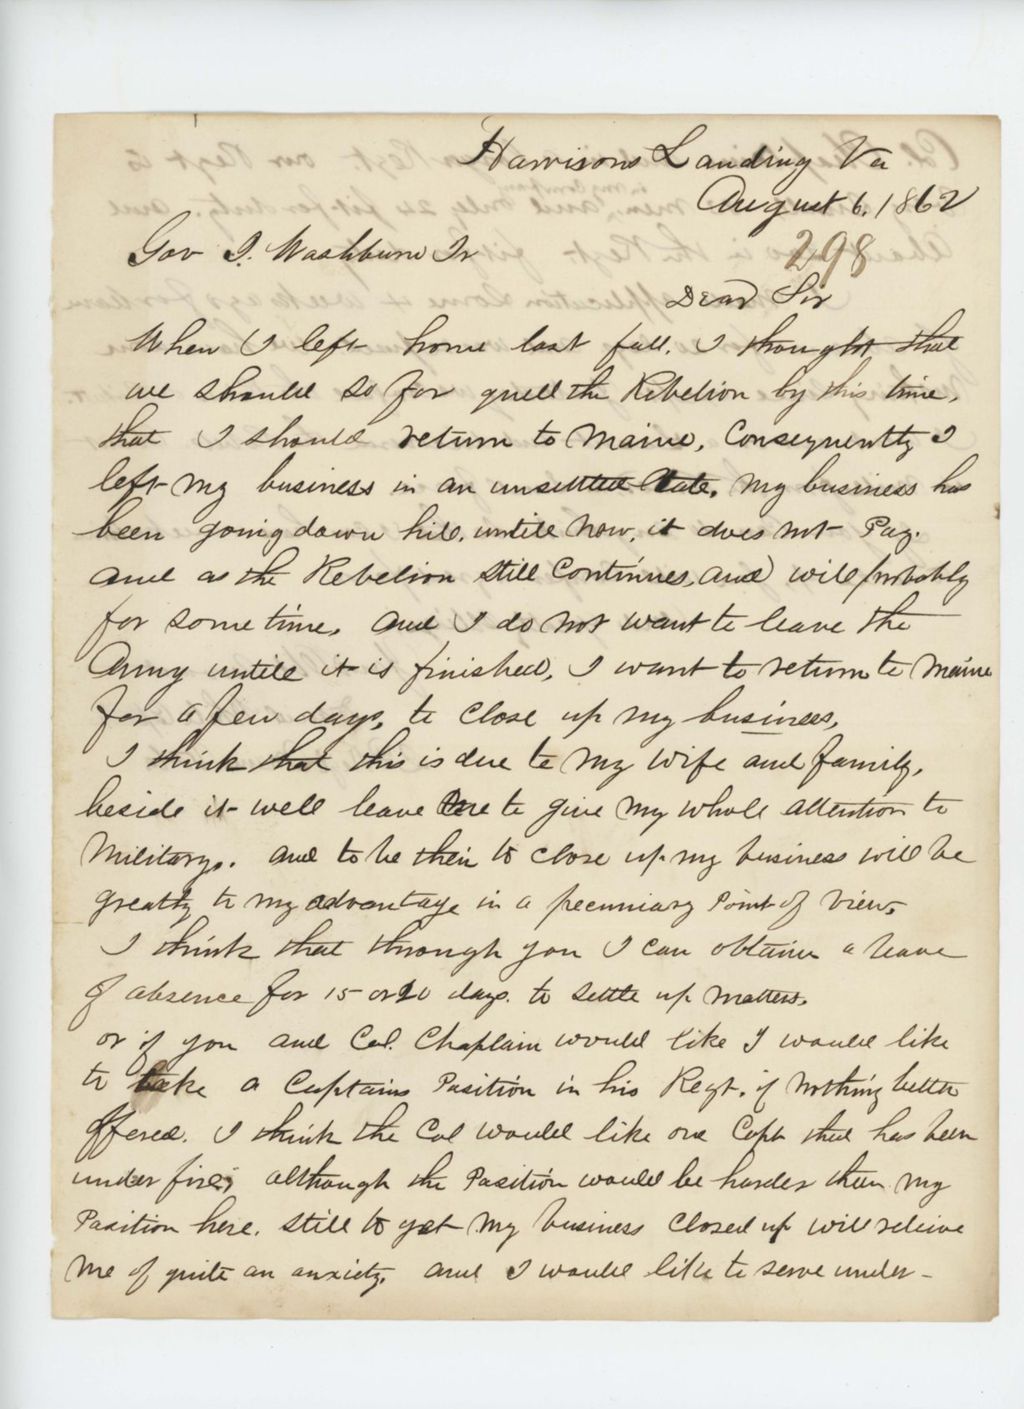 Harrisons Landing Va
August 6, 1862
Gov I. Washburn Jr
298
Dear Sir
When I left home last fall. I thought that
we should so far quell the Rebelion by this time,
that I should return to Maine, Consequently I
left my business in an unsettled state, my business has
been going down hill, untill now, it does not Pay.
and as the Rebelion still Continues, and will probably
for some time, and I do not want to leave the
Army untill it is finished, I want to return to Maine
for a few days, to close up my business,
I think that this is due to my wife and family,
beside it well leave me to give my whole attention to
Military. and to be then to close up my business will be
greatly to my advantage in a pecuniary Point of view,
I think that through you I can obtain a leave
of absence for 15 or 20 days. to settle up matters.
or if you and Col. Chaplain would like I would like
to take a Captains Position in his Regt. if nothing better
offered. I think the Col would like one Capt that has been
under fire; although the Position would be harder than my
Position here. still to get my business closed up will releive
me of quite an anxiety, and I would like to serve under-